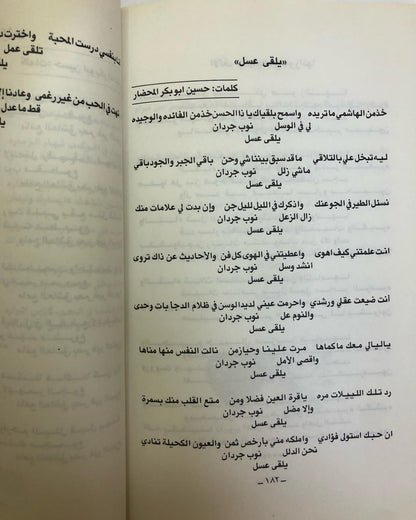 «يلقى عسل»
كلمات: حسين ابو بكر المحضار
خذمن الهاشمي ماتريده واسمح بلقياك ياذا الحسن خذمن الفائده والوجيده
لي في الوسل نوب جردان
يلقى عسل
ليه تبخل علي بالتلاقي ماقد سبق بيننا شي وحن باقي الجبر والجود باقي
ماشي زلل نوب جردان
يلقى عسل
نسئل الطير في الجو عنك واذكرك في الليل لليل جن وإن بدت لي علامات منك
زال الزعل نوب جردان
يلقى عسل
انت علمتني كيف اهوى واعطيتني في الهوى كل فن والأحاديث عن ذاك تروى
انشد وسل نوب جردان
يلقى عسل
أنت ضيعت عقلي ورشدي واحرمت عيني لديد الوسن في ظلام الدجا بات وحدى
والنوم عل نوب جردان
يلقى عسل
ياليالي معك ماكماها مرت علينا وحيازمن نالت النفس منها مناها
واقصى الأمل نوب جردان
يلقى عسل
رد تلك الليبلات مره ياقرة العين فضلا ومن متع القلب منك بسمرة
وإلا مضل نوب جردان
يلقى عسل
ان حبك استولى فؤادي واملكه مني بأرخص ثمن والعيون الكحيلة تنادي
نحن الدلل نوب جردان
يلقى عسل
ـ ١٨٢ ـ
بنفسي درست المحبة واخترت
تلقى عمل
يلقى
تهت في الحب من غير رغمى وعادنا
قط ما عدل